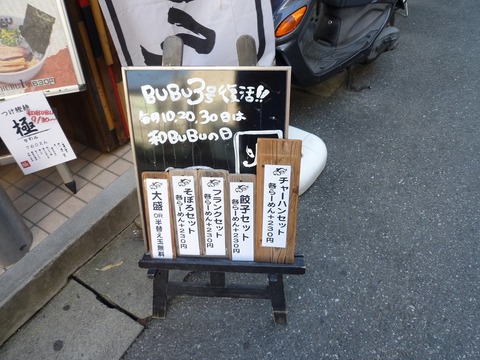 BUBU3号復活!!
毎月10,20,30日は
和BUBUの日
チャーハンセット
各らーめん+230円
餃子セット
各らーめん+230円
フランクセット
各らーめん+230円
そぼろセット
各らーめん+230円
大盛
OR
半替え玉無料
830円
つけ麺
極
760えん